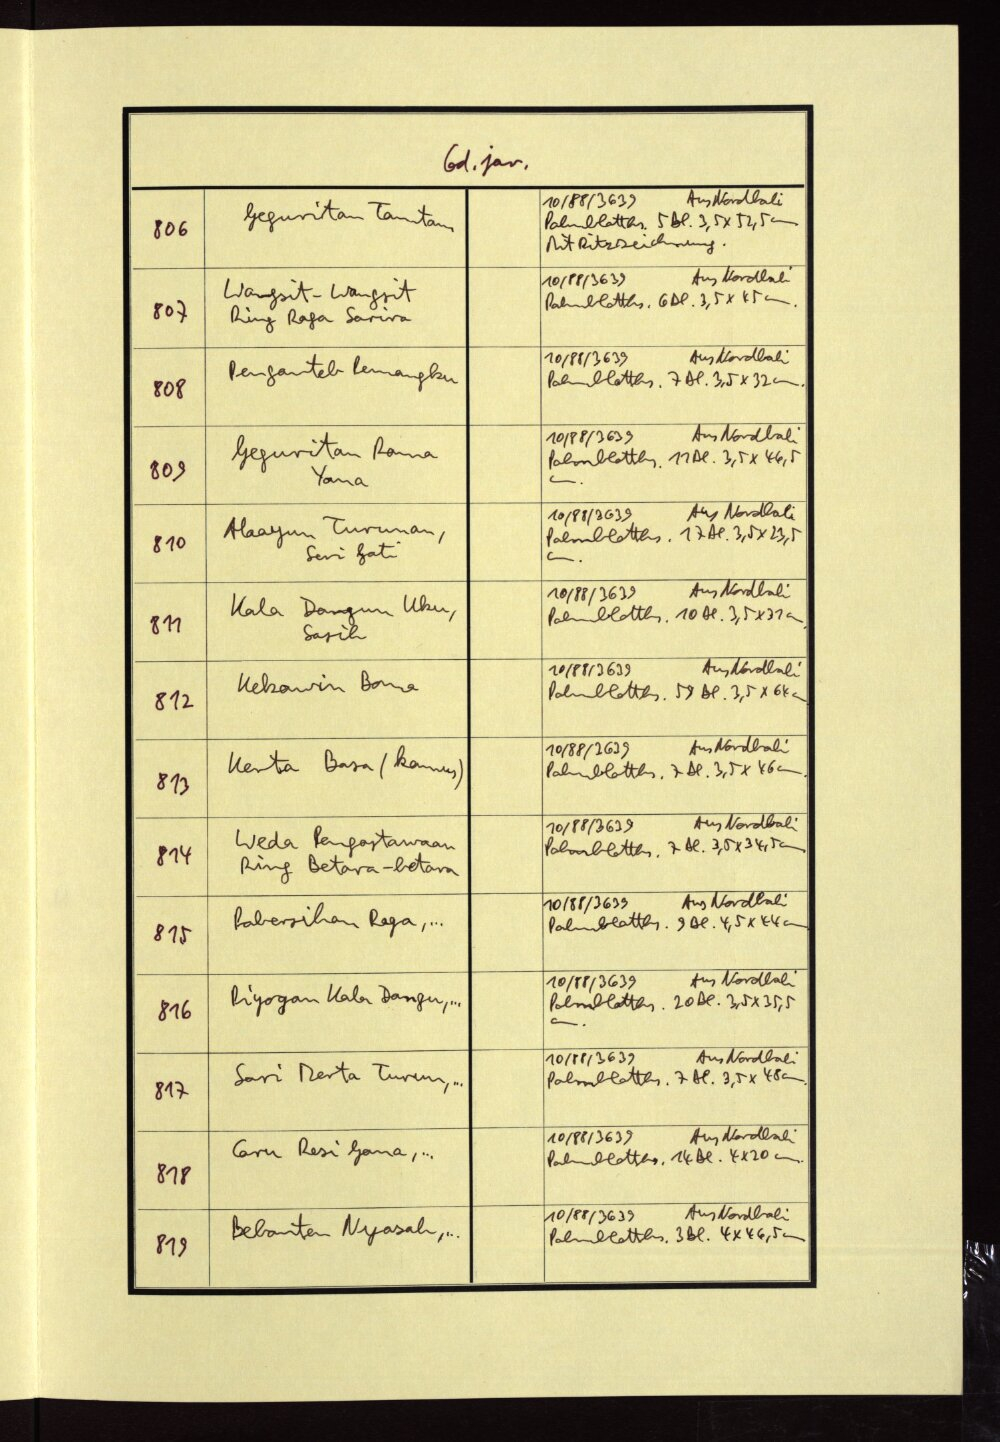 Cod. jav.
806
Geguritan Tamtam
10/88/3639 Aus Nordbali
Palmblatths. 5 Bl. 3,5 x 52,5 cm
Mit Ritzzeichnung.
807
Wangsit-Wangsit
Ring Raga Sarira
10/88/3639 Aus Nordbali
Palmblatths. 6 Bl. 3,5 x 45 cm.
808
Penganteb Pemangku
10/88/3639 Aus Nordbali
Palmblatths. 7 Bl. 3,5 x 32 cm.
809
Geguritan Rama
Yana
10/88/3639 Aus Nordbali
Palmblatths. 11 Bl. 3,5 x 46,5
cm.
810
Alaayun Turunan,
Seri Gati
10/88/3639 Aus Nordbali
Palmblatths. 17 Bl. 3,5 x 23,5
cm.
811
Kala Dangun Uku,
Sasih
10/88/3639 Aus Nordbali
Palmblatths. 10 Bl. 3,5 x 31 cm.
812
Kekawin Boma
10/88/3639 Aus Nordbali
Palmblatths. 59 Bl. 3,5 x 64 cm
813
Kerta Basa (kamus)
10/88/3639 Aus Nordbali
Palmblatths. 7 Bl. 3,5 x 46 cm.
814
Weda Pengastawaan
Ring Betara-betara
10/88/3639 Aus Nordbali
Palmblatths. 7 Bl. 3,5 x 34,5 cm
815
Pabersihan Raga,...
10/88/3639 Aus Nordbali
Palmblatths. 9 Bl. 4,5 x 44 cm
816
Piyogan Kala Dangu,...
10/88/3639 Aus Nordbali
Palmblatths. 20 Bl. 3,5 x 35,5
cm.
817
Sari Merta Turun,...
10/88/3639 Aus Nordbali
Palmblatths. 7 Bl. 3,5 x 48 cm.
818
Caru Resi Gana,...
10/88/3639 Aus Nordbali
Palmblatths. 14 Bl. 4 x 20 cm.
819
Bebanten Nyasah,...
10/88/3639 Aus Nordbali
Palmblatths. 3 Bl. 4 x 46,5 cm